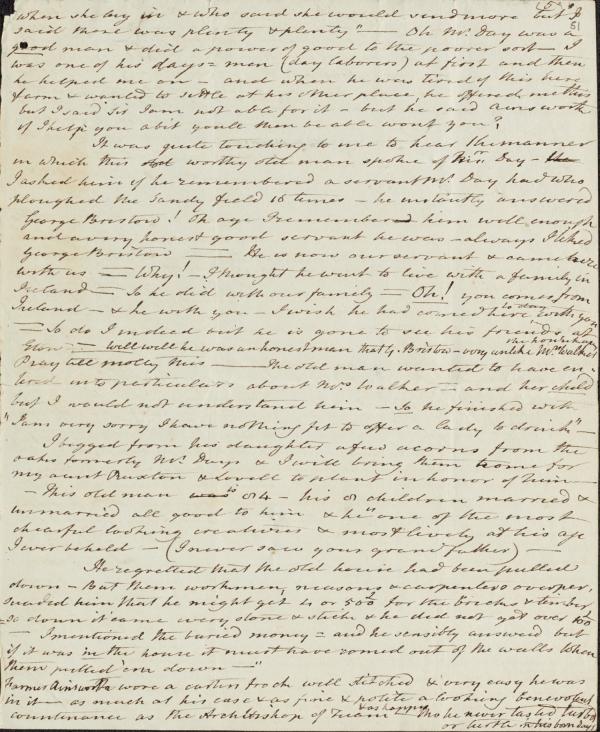 when she lay in & who said she would send more but "I
said there was plenty & plenty" — Oh Mr. Day was a
51
good man & did a power of good to the poorer sort — I
was one of his days = men (day laborers) at first and then
he helped me on — and when he was tired of this here
farm & wanted to settle at his other place he offered me this
but I said Sir I am not able for it — but he said Ainsworth
if I help you a bit you'll then be able wont you?
It was quite touching to me to hear the manner
in which this old worthy old man spoke of his Mr. Day —
I asked him if he remembered a servant Mr. Day had who
ploughed the Sandy field 16 times — he instantly answered
George Bristow! Oh aye I remembered him well enough
and a very honest good servant he was — always I liked
George Bristow — He is now our servant & came here
with us — Why! — I thought he went to live with a family in
Ireland — So he did with our family — Oh! you comes from
Ireland — & he with you — I wish he had comed here down with you
— So do I indeed but he is gone to see his friends at
Eton — well well he was an honest man that G. Bristow — very unlike Mr. Walker the housekeeper
Pray tell Molly this — The old man wanted to have en-
tered into particulars about Mrs. Walker — and her child
but I would not understand him — So he finished with
"I am very sorry I have nothing fit to offer a lady to drink" —
I begged from his daughter a few acorns from the
oaks formerly Mr. Days & I will bring them home for
my aunt Ruxton & Lovell to plant in honor of him —
— This old man is 84 — his 8 children married &
unmarried all good to him & he "one of the most
chearful looking creatures & most lively at his age
I ever beheld — (I never saw your grand father) —
He regretted that the old house had been pulled
down — But them workmen, masons & carpenters overper-
suaded him that he might get 4 or 500£ for the bricks & timber
— so down it came every stone & stick & he did not get over 100£
— I mentioned the buried money = and he sensibly answerd but
if it was in the house it must have comed out of the walls when
them pulled 'em down —"
Farmer Ainsworth wore a carter's frock well stitched & very easy he was
in it — as much at his ease & as fine & polite a looking benevolent
countenance as the Archbishop of Tuam & as happy tho he never tasted turbot
or turtle in his born days